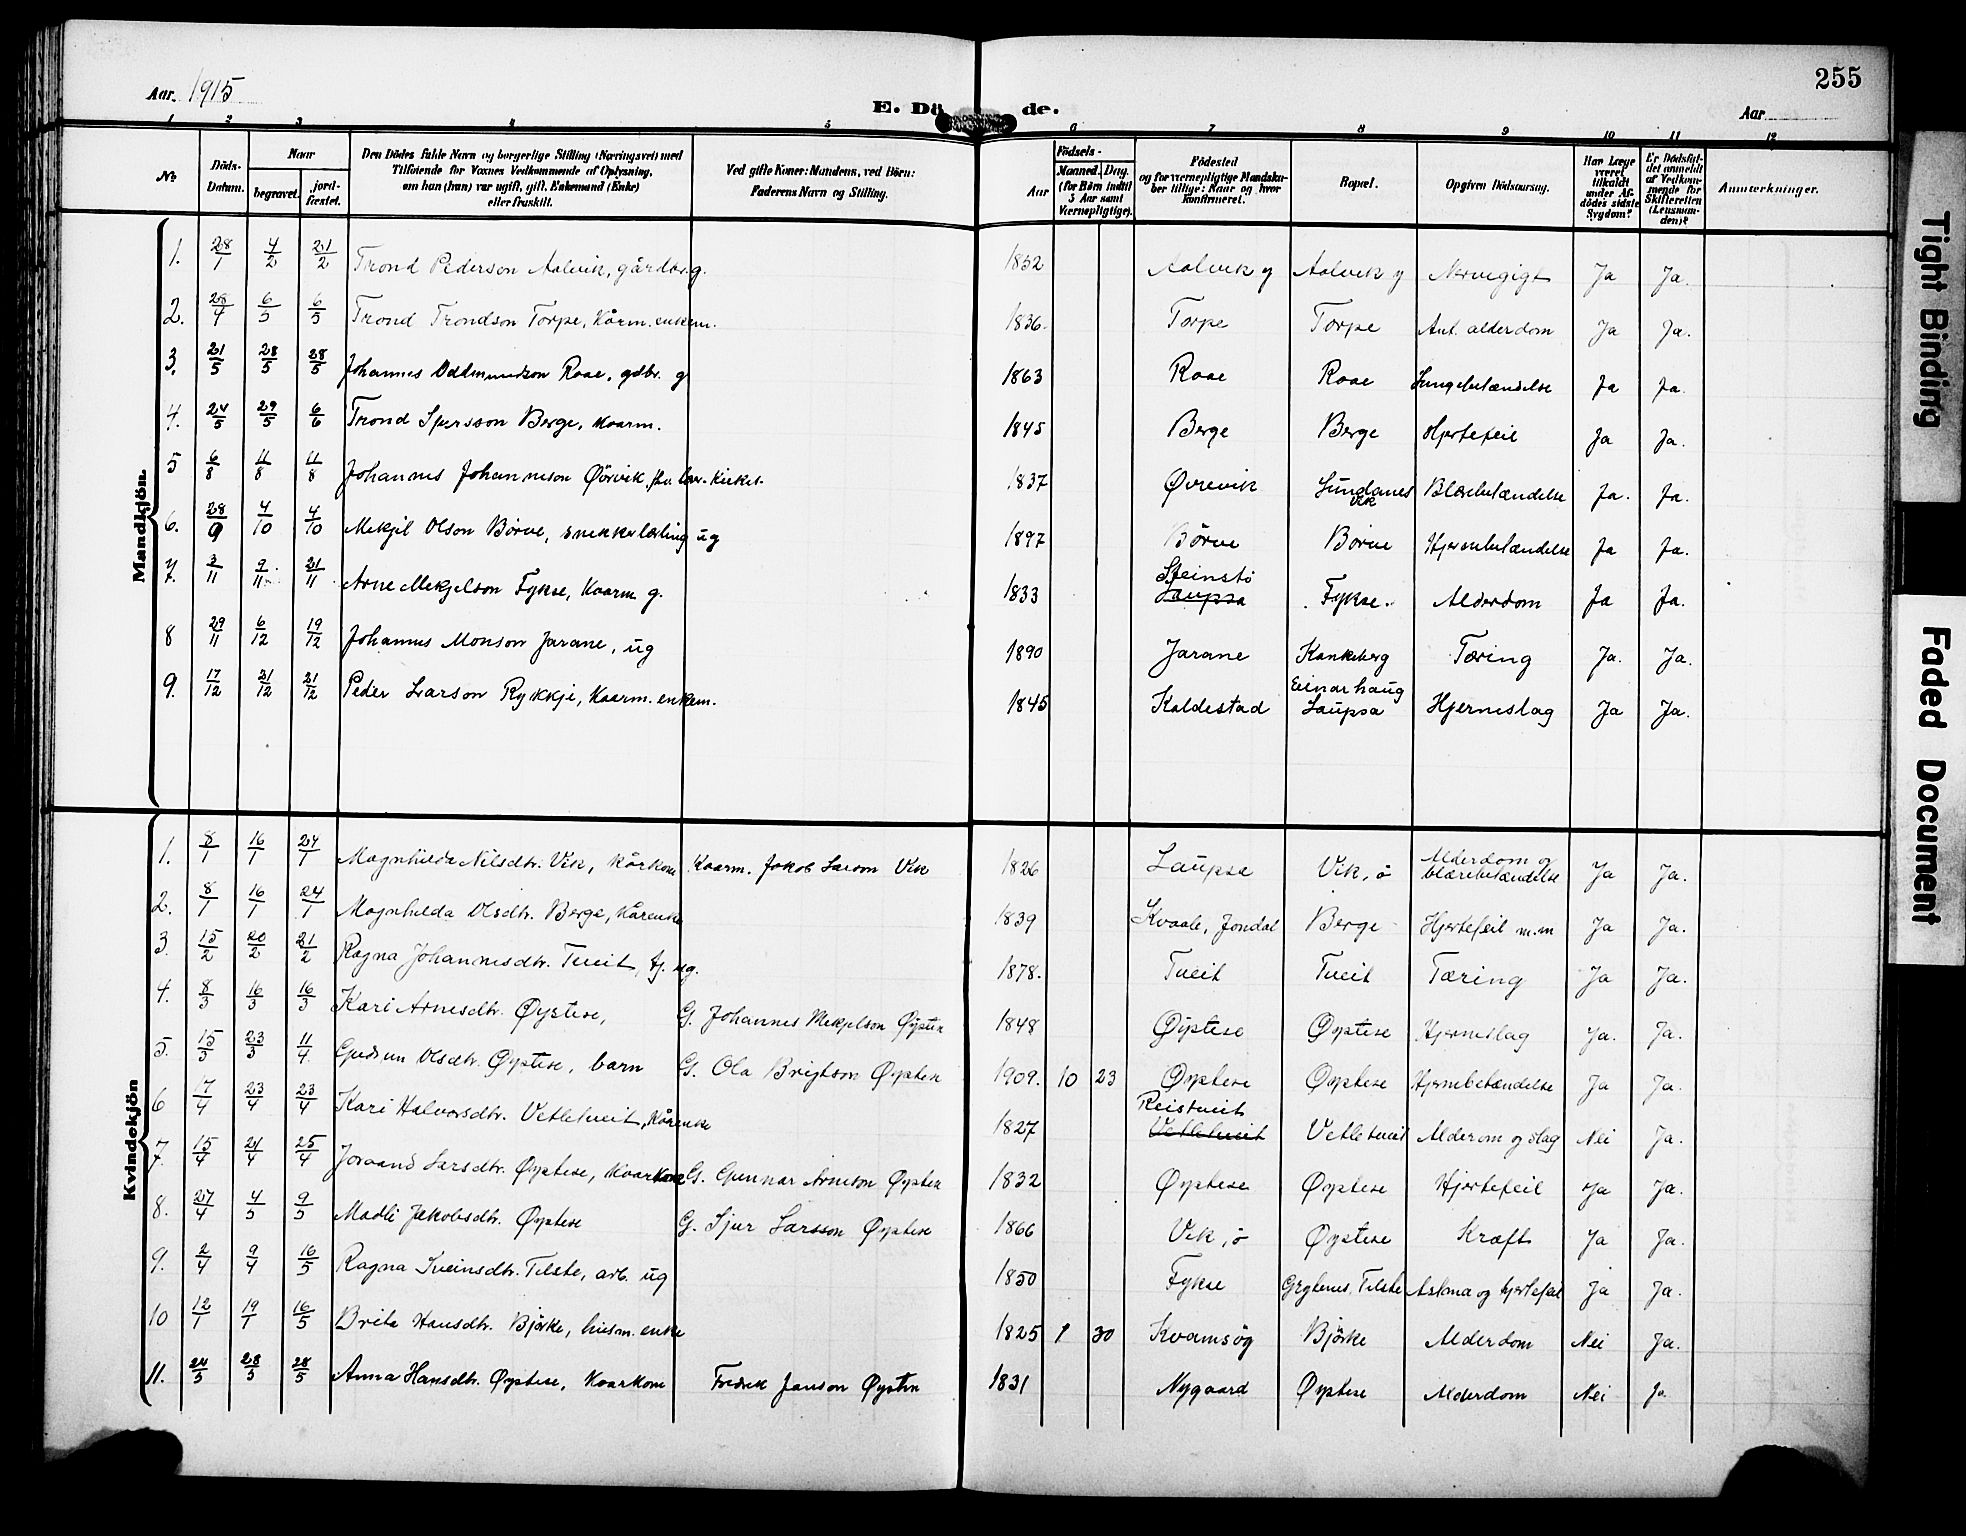 Aar. 1915
E. Dö de.
Aar
255
1 2 3 4 5 6 7 8 9 10 11 12
No.
Döds-Datum.
Naar
begravet.
jord-fæstet.
Den Dödes fulde Navn og borgerlige Stilling (Næringsvei) med
Tilföiende for Voxnes Vedkommende af Oplysning,
om han (hun) var ugift, gift, Enkemand (Enke)
eller fraskilt.
Ved gifte Koner: Mandens, ved Börn:
Faderens Navn og Stilling.
Födsels-
Aar
Maaned. Dag.
(for Börn indtil
5 Aar samt
Værnepligtige).
Födested
og for værnepligtige Mandska-
ber tillige: Naar og hvor
konfirmeret.
Bopæl.
Opgiven Dödsaarsag.
Har Læge
været
tilkaldt
under Af-
dödes sidste
Sygdom?
Er Dödsfal-
det anmeldt
af Vedkom-
mende for
Skifteretten
(Lensman-
den)?
Anmærkninger.
Mandkjön.
1. 28/1 4/2 21/2 Trond Pederson Aalvik, gårdbr. g. 1832 Aalvik y Aalvik y Nervegigt Ja Ja.
2. 28/4 6/5 6/5 Trond Trondson Torpe, Kårm. enkem. 1836. Torpe Torpe Ant. alderdom Ja Ja.
3. 21/5 28/5 28/5 Johannes Oddmundson Roae, gdbr. g 1863 Roae Roae Lungebetændelse Ja Ja.
4. 24/5 29/5 6/6 Trond Sjursson Berge, Kaarm. 1845 Berge Berge Hjertefeil Ja Ja.
5 6/8 11/8 11/8 Johannes Johanneson Øvrvik, 1837 Øvrevik Sundanes Vik Blærebetændelse Ja. Ja.
6. 28/9 4/10 4/10 Mekjel Olson Börve, snekkerlærling ug 1897 Börve Börve Hjernebetændelse Ja Ja.
7. 3/11 9/11 21/11 Arne Mekjelson Fykse, Kaarm g. 1833 Steinstö Laupsa Fykse. Alderdom Ja Ja.
8 29/11 6/12 19/12 Johannes Monson Jarane, ug 1890 Jarane Kankeberg Tæring Ja. Ja.
9. 17/12 21/12 21/12 Peder Larson Rykkje, Kaarm. enkem. 1845 Kaldestad Einarhaug Laupsa Hjerneslag Ja Ja.
Kvindekjön
1. 8/1 16/1 24/1 Magnhilda Nilsdtr. Vik, kårkone Kaarm. Jakob Larson Vik 1826 Laupsa Vik, ö Alderdom og blærebetændelse Ja Ja.
2. 8/1 16/1 24/1 Magnhilda Olsdtr. Berge, Kårenke 1839 Kvaale, Jondal Berge Hjertefeil m.m Ja Ja.
3 15/2 20/2 21/2 Ragna Johannesdtr. Tveit, tj. ug. 1878. Tveit Tveit Tæring Ja Ja.
4. 8/3 16/3 16/3 Kari Arnesdtr. Øystese, G. Johannes Mekjelson Øystese 1848 Øystese Øystese Hjerneslag Ja. Ja.
5. 15/3 23/3 11/4 Gudrun Olsdtr. Øystese, barn G. Ola Brigtson Øystese 1909. 10 23 Øystese Øystese Hjernebetændelse Ja Ja.
6 17/4 23/4 23/4 Kari Halvorsdtr. Vetletveit, Kårenke 1827 Reistveit Vetletveit Vetletveit Alderom og slag Nei Ja.
7. 15/4 21/4 25/4 Joraand Larsdtr. Øystese, Kaarkone G. Gunnar Arneson Øystese 1832 Øystese Øystese Hjertefeil Ja Ja.
8. 27/4 4/5 9/5 Madli Jakobsdtr. Øystese G. Sjur Larsson Øystese 1866 Vik, ö Øystese Kræft Ja Ja.
9. 2/4 9/4 16/5 Ragna Sveinsdtr. Tilste, arb. ug 1850 Fykse Tilste Astma og hjertefeil Ja Ja.
10 12/1 19/1 16/5 Brita Hansdtr. Björke, husm. enke 1825 1 30 Kvamsög Björke Alderdom Nei Ja.
11. 24/5 28/5 28/5 Anna Hansdtr. Øystese, Kaarkone Fredrik Janson Øystese 1831 Nygaard Øystese Alderdom Nei Ja
Tight Binding
Faded Document